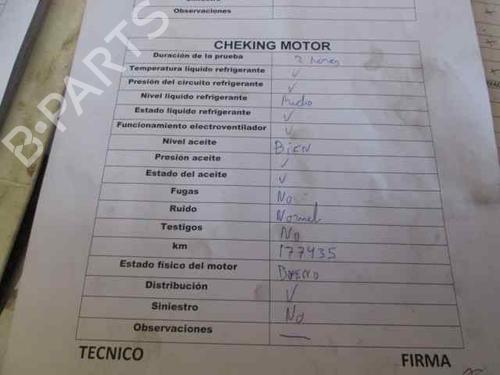 Observaciones
CHEKING MOTOR
Duración de la prueba 2 horas
Temperatura liquido refrigerante ✓
Presión del circuito refrigerante ✓
Nivel liquido refrigerante Medio
Estado liquido refrigerante ✓
Funcionamiento electroventilador ✓
Nivel aceite Bien
Presión aceite ✓
Estado del aceite ✓
Fugas No
Ruido Normal
Testigos No
km 177435
Estado físico del motor Bueno
Distribución ✓
Siniestro No
Observaciones —
TECNICO FIRMA
B-PARTS